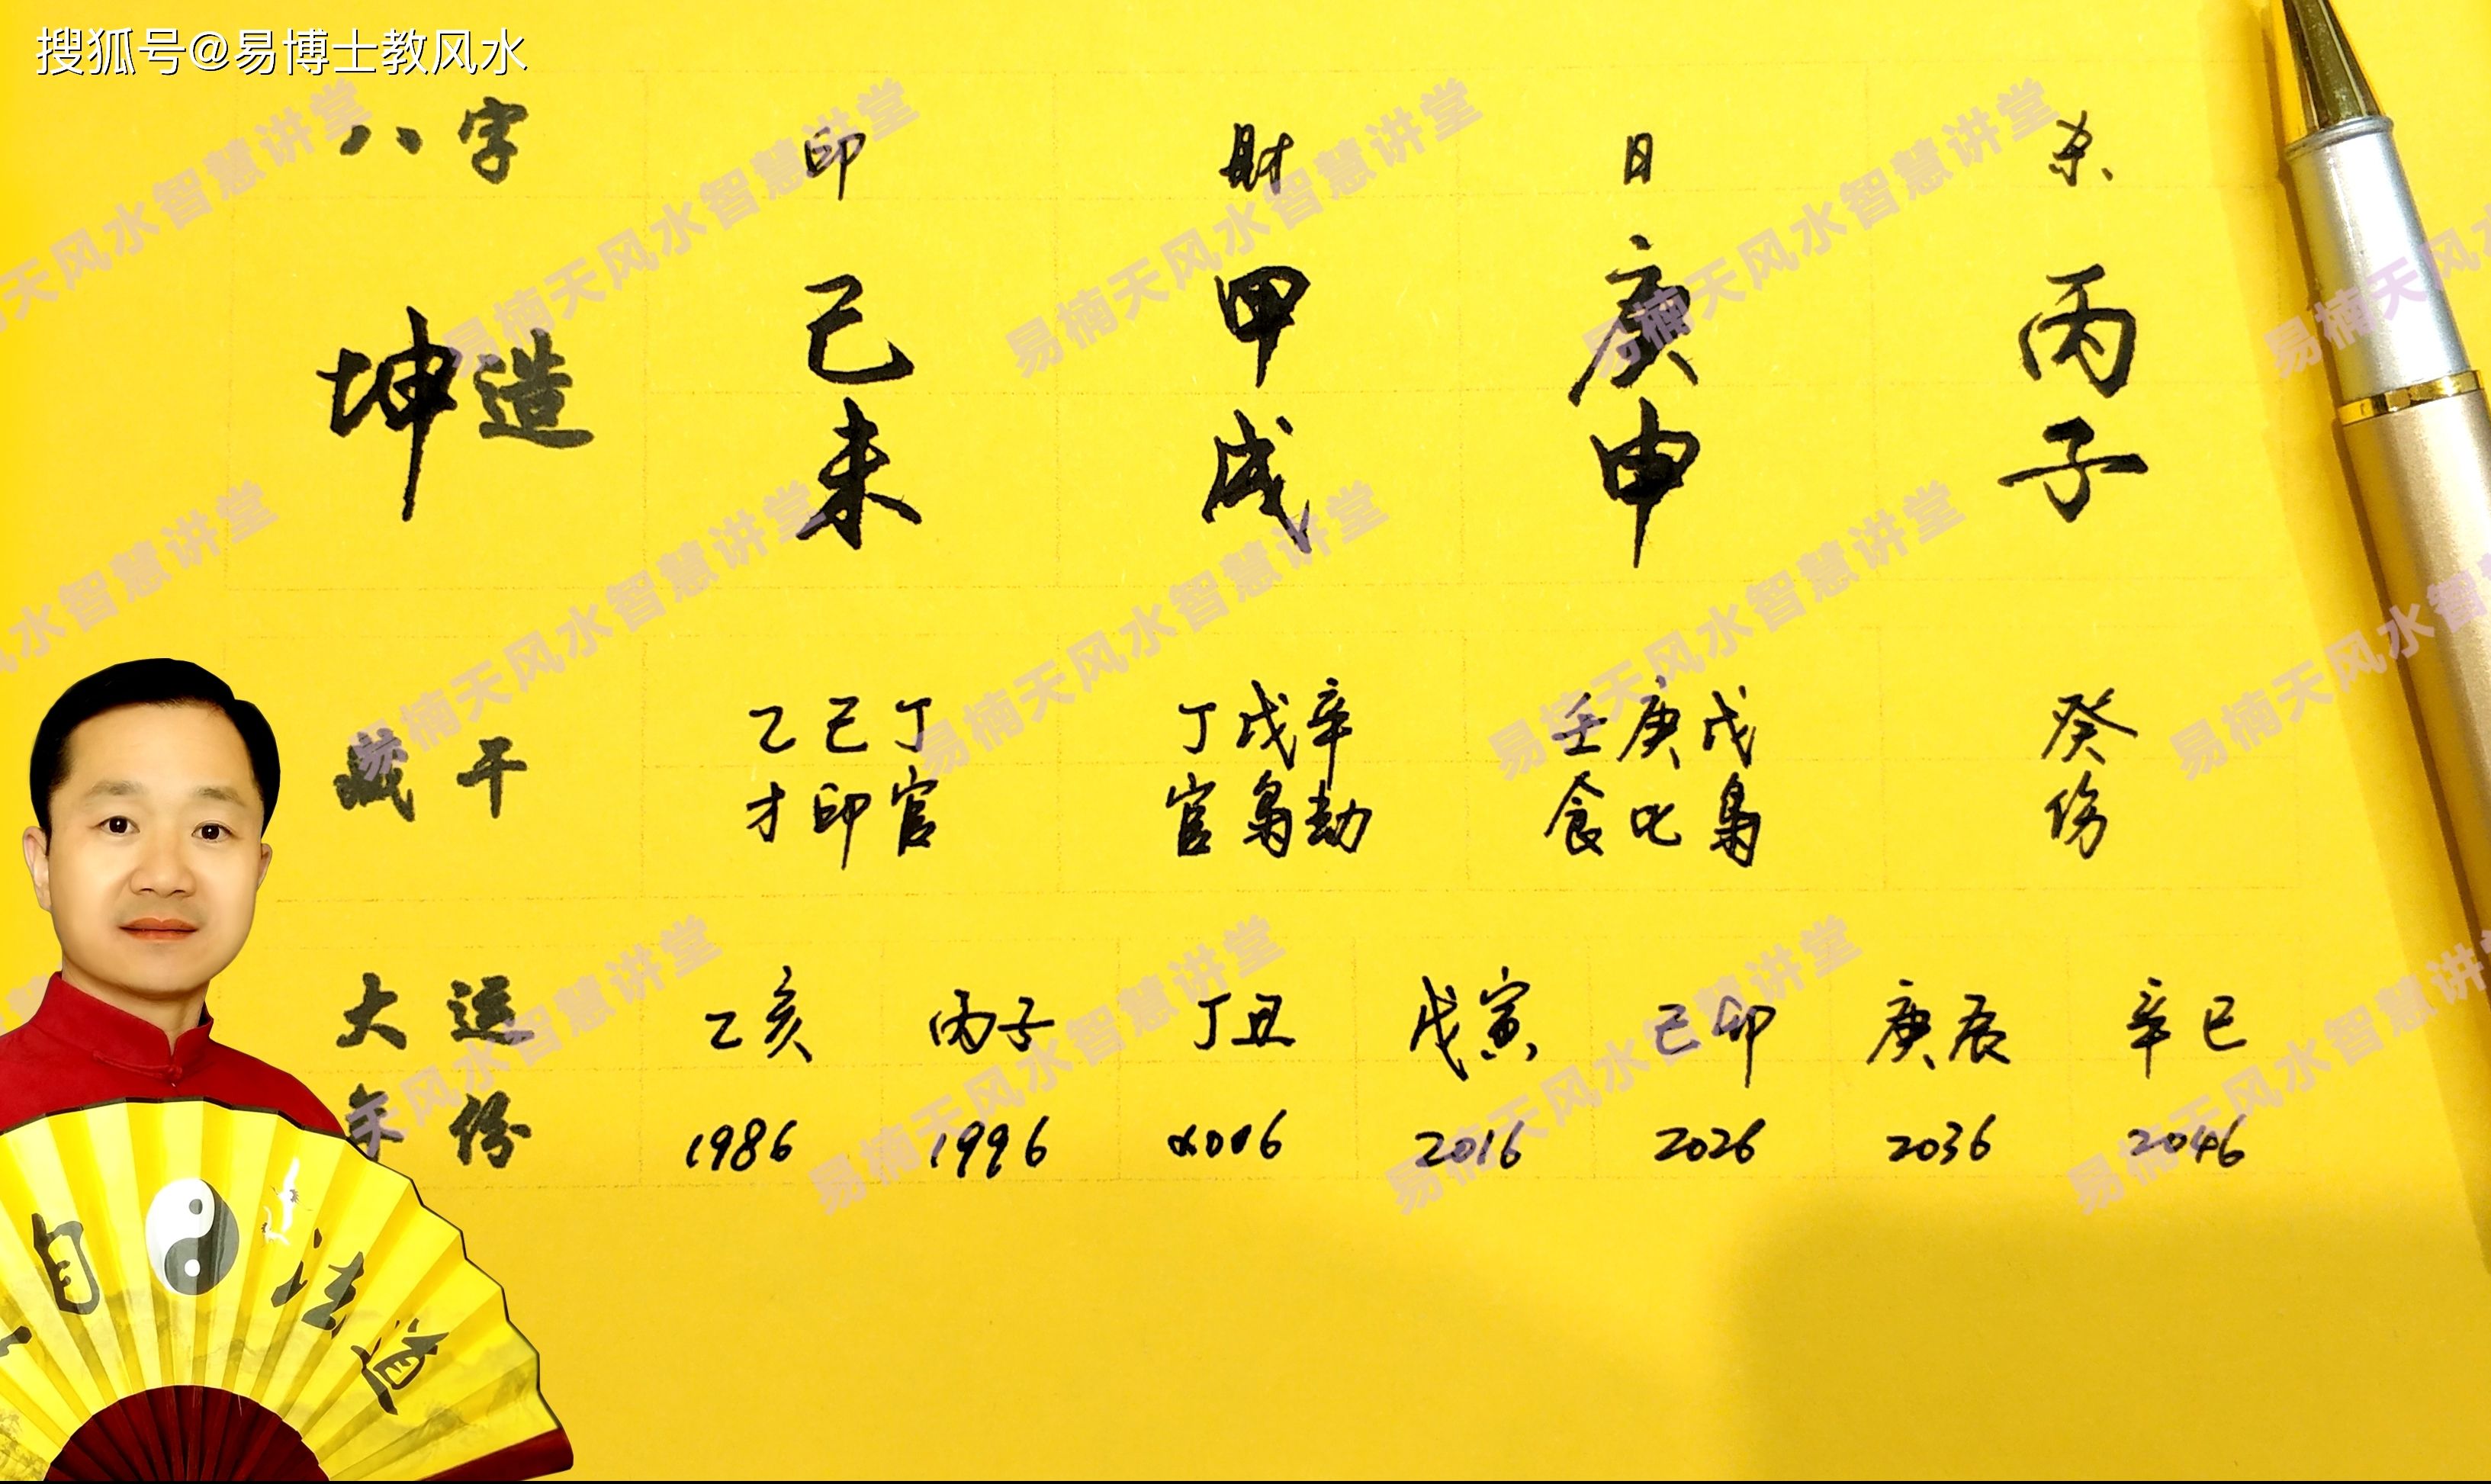 搜狐号@易博士教风水
八字 印 财 日 杀
坤造 己 甲 庚 丙
未 戌 申 子
藏干 乙己丁 丁戊辛 壬庚戊 癸
才印官 官枭劫 食比枭 伤
大运 乙亥 丙子 丁丑 戊寅 己卯 庚辰 辛巳
年份 1986 1996 2006 2016 2026 2036 2046
自法道
易楠天风水智慧讲堂